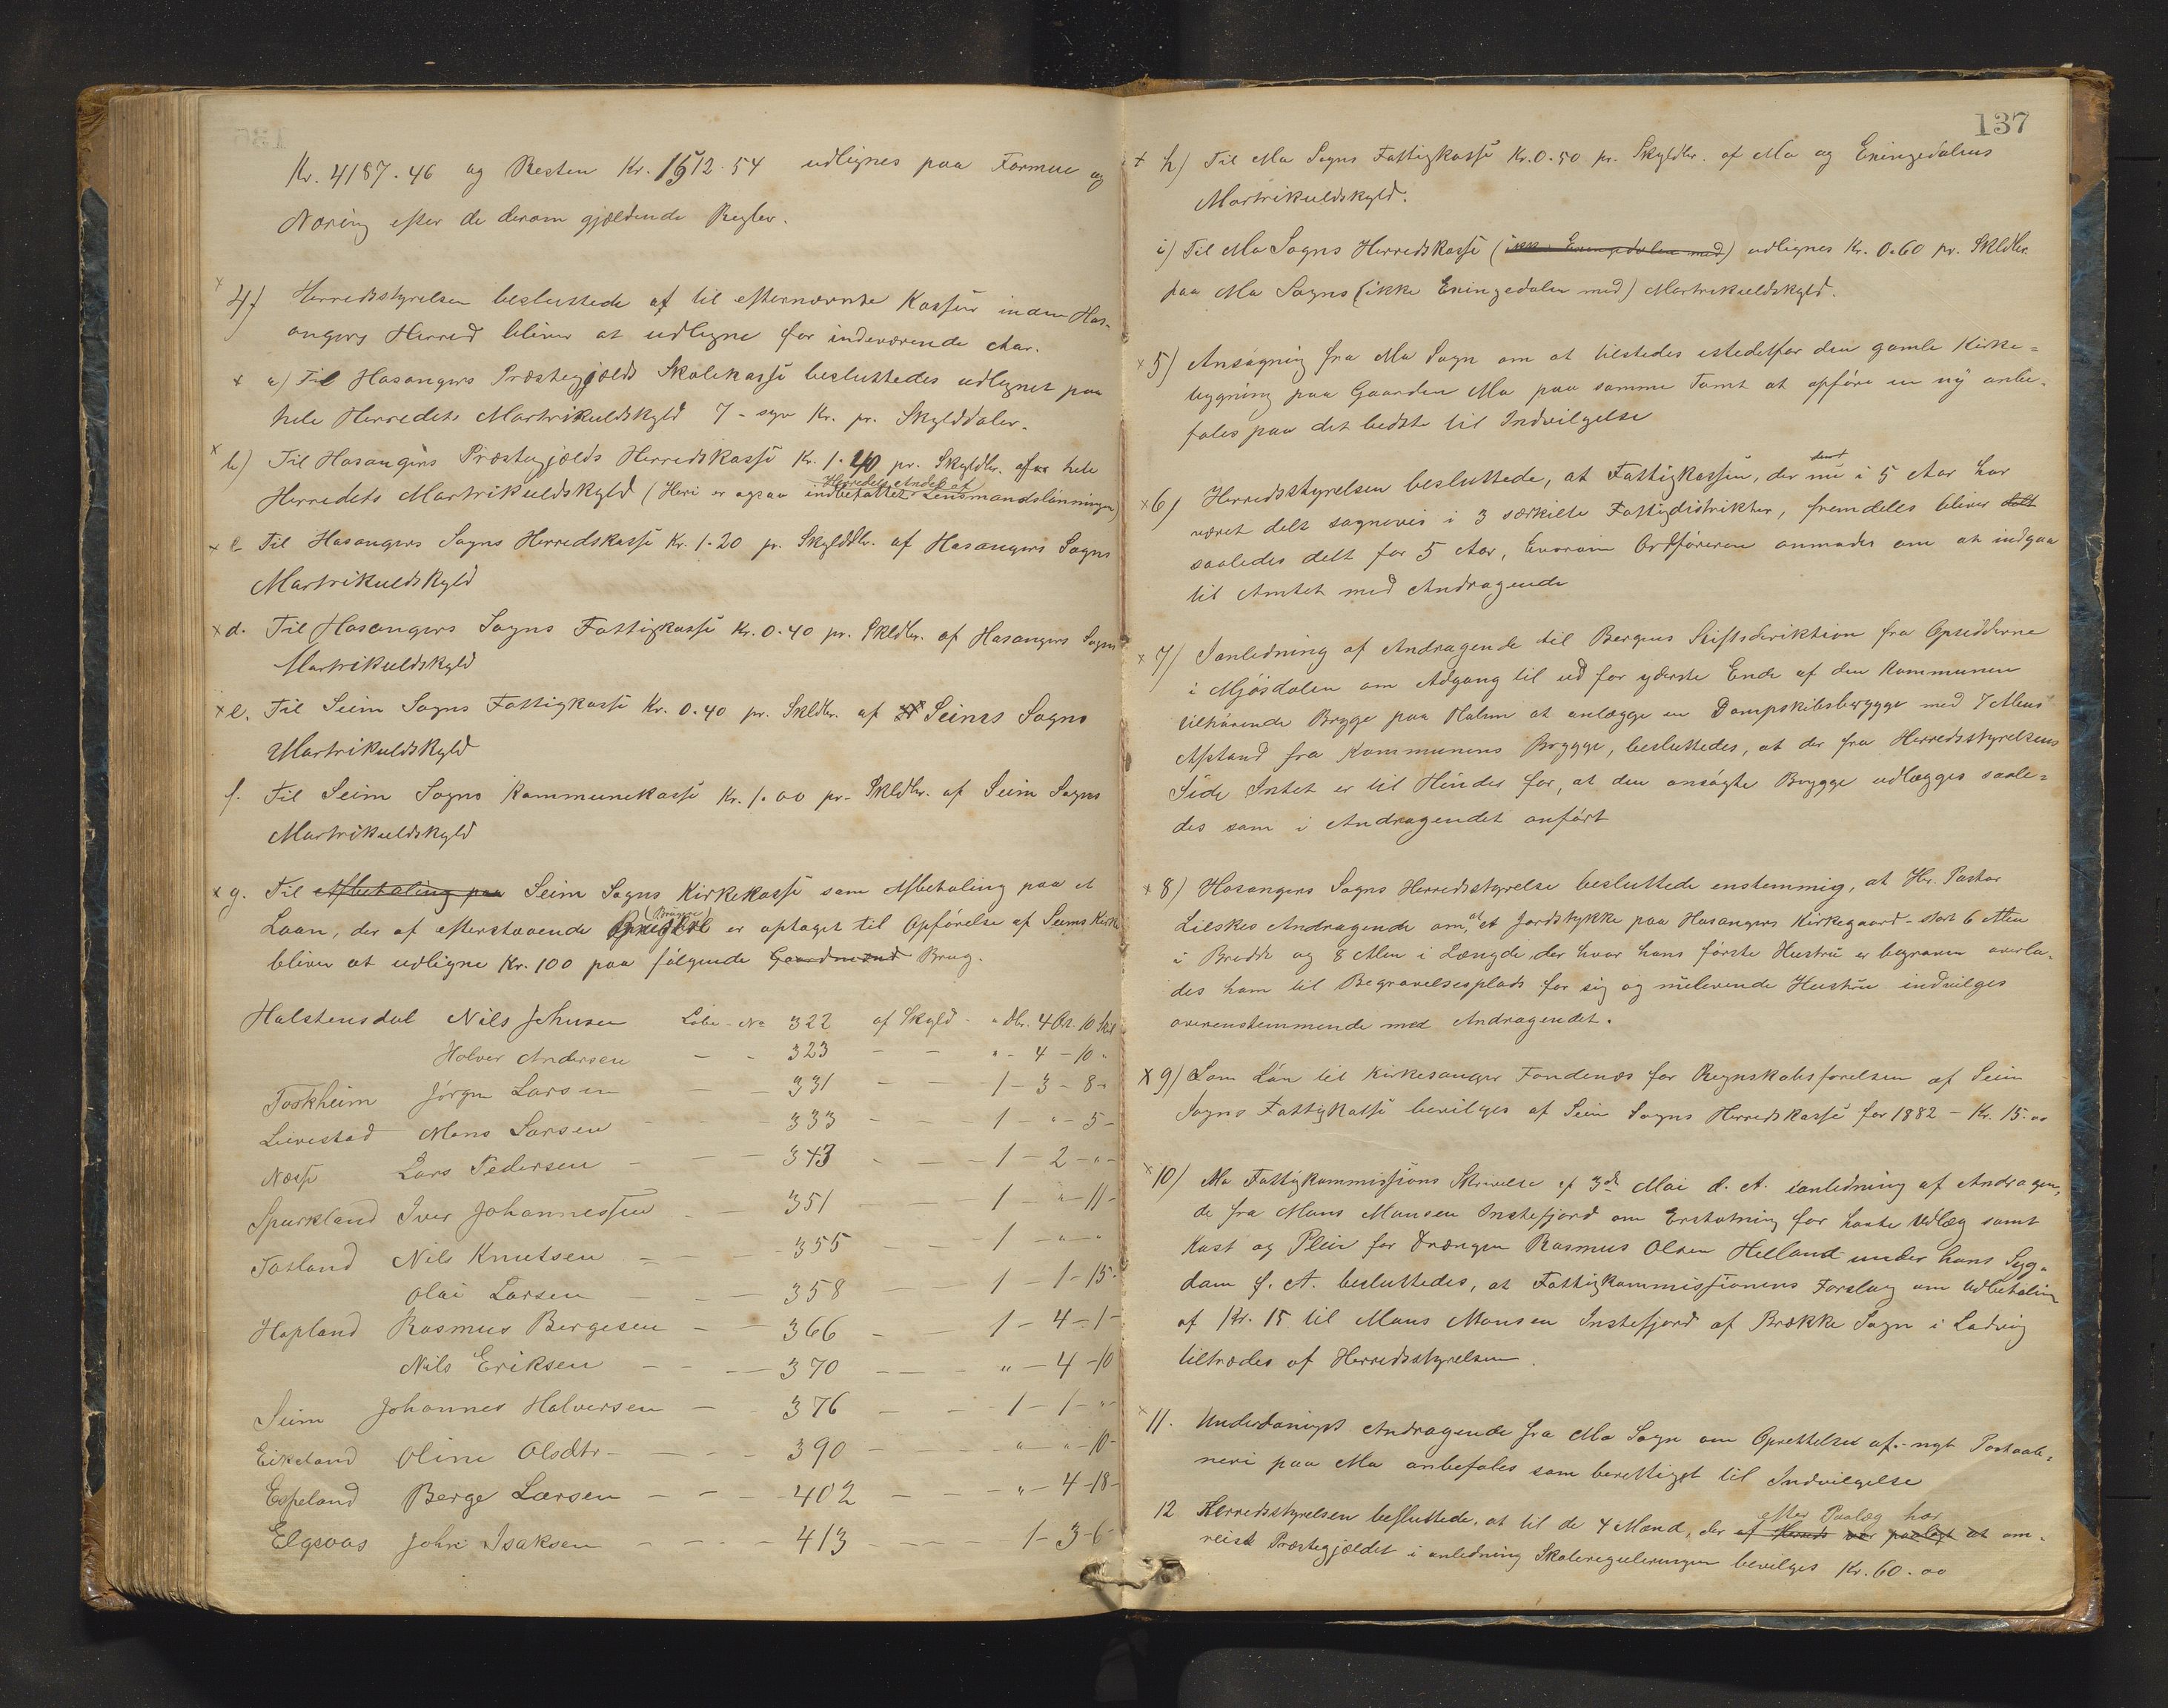 Kr. 4187.46 og Resten Kr. 1512.54 udlignes paa Formue og
Næring efter de derom gjældende Regler.
4) Herredsstyrelsen besluttede at til efternævnte Kasser inden Hos-
angers Herred bliver at udligne for indeværende Aar.
a) Til Hosangers Præstegjælds Skolekasse besluttedes udlignet paa
hele Herredets Martrikuldskyld 7 - syv Kr. pr. Skylddaler.
b) Til Hosangers Præstegjælds Herredskasse Kr. 1.40 pr. Skyldlr. af hele
Herredets Andel af
Herredets Martrikuldskyld (Heri er ogsaa indbefattet Lensmandslønningen)
c Til Hosangers Sogns Herredskasse Kr. 1.20 pr. Skylddlr. af Hosangers Sogns
Martrikuldskyld
d. Til Hosangers Sogns Fattigkasse Kr. 0.40 pr. Skldlr. af Hosangers Sogns
Martrikuldskyld
e. Til Seim Sogns Fattigkasse Kr. 0.40 pr. Skldlr. af Seims Sogns
Martrikuldskyld
f. Til Seim Sogns Kommunekasse Kr. 1.00 pr. Skldlr. af Seim Sogns
Martrikuldskyld
g. Til Afbetaling paa Seim Sogns Kirkekasse som Afbetaling paa et
(Bruge)
Laan, der af efterstaaende er optaget til Opførelse af Seims Kirke
bliver at udligne Kr. 100 paa følgende Gaardmænd Brug.
Halstensdal Nils Johnsen Løbe-No 322 af Skyld - " Dlr. 4 Ort 10 Skl
Holver Andersen - - 323 - - " - 4 - 10 "
Toskheim Jørgen Larsen 331 - - 1 - 3 - 8 -
Leivestad Mons Larsen - - 333 - - 1 - " - 5 -
Næsse Lars Pedersen - - 343 - - 1 - 2 - " -
Spurkland Iver Johannessen - - 351 - - 1 - " - 11 -
Totland Nils Knutsen - - 355 - - 1 - " - "
Olai Larsen - - 358 - - 1 - 1 - 15 -
Hopland Rasmus Bergesen - - 366 - - 1 - 4 - 1 -
Nils Eriksen - - 370 - - " - 4 - 10
Seim Johannes Halversen - - 376 - - 1 - 1 - " -
Eikeland Oline Olsdtr - - 390 - - " - " - 10 -
Espeland Berge Larsen - - 402 - - " - 4 - 18 -
Elgsaas John Isaksen - - 413 - - 1 - 3 - 6 -
137
h) Til Mo Sogns Fattigkasse Kr. 0.50 pr. Skyldlr. af Mo og Eningedalens
Martrikuldskyld.
i) Til Mo Sogns Herredskasse (ikke Eningedalen med) udlignes Kr. 0.60 pr. Skldlr.
paa Mo Sogns (ikke Eningedalen med) Martrikuldskyld.
5) Ansøgning fra Mo Sogn om at tilstedes istedetfor den gamle Kirke-
bygning paa Gaarden Mo paa samme Tomt at opføre en ny anbe-
fales paa det bedste til Indvilgelse
6) Herredsstyrelsen besluttede, at Fattigkassen, der nu i 5 Aar har
været delt sognevis i 3 særkilte Fattigdistrikter, fremdeles bliver delt
saaledes delt for 5 Aar, hvorom Ordføreren anmodes om at indgaa
til Amtet med Andragende
7) Ianledning af Andragende til Bergens Stiftsdiriktion fra Opsidderne
i Mjøsdalen om Adgang til ud for yderste Ende af den Kommunen
tilhørende Brygge paa Holmen at anlægge en Dampskibsbrygge med 7 Alens
Afstand fra Kommunens Brygge, besluttedes, at der fra Herredsstyrelsens
Side Intet er til Hinder for, at den ansøgte Brygge udlægges saale-
des som i Andragendet anført
8) Hosangers Sogns Herredsstyrelse besluttede enstemmig, at Hr. Pastor
Lieskes Andragende om, at et Jordstykke paa Hosangers Kirkegaard - stort 6 Alen
i Bredde og 8 Alen i Længde, der hvor hans første Hustru er begraven overla-
des ham til Begravelsesplads for sig og nulevende Hustru indvilges
overenstemmende med Andragendet.
9) Som Løn til Kirkesanger Fondenæs for Regnskabsførelsen af Seim
Sogns Fattigkasse bevilges af Seim Sogns Herredskasse for 1882 - Kr. 15.00
10) Mo Fattigkommissions Skrivelse af 3de Mai d. A. ianledning af Andragen-
de fra Mons Monsen Instefjord om Erstatning for havte Udlæg samt
Kost og Pleie for Drængen Rasmus Olsen Helland under hans Syg-
dom f. A. besluttedes, at Fattigkommissionens Forslag om Udbetaling
af Kr. 15 til Mons Monsen Instefjord af Brække Sogn i Ladvig
tiltrædes af Herredsstyrelsen.
11. Underdanigst Andragende fra Mo Sogn om Oprettelse af nyt Postaab-
neri paa Mo anbefales som berettiget til Indvilgelse
efter Paalæg har
12 Herredsstyrelsen besluttede, at til de 4 Mænd, der af Herreds var paalagt at om-
reist Præstegjældet i anledning Skolereguleringen bevilges Kr. 60.00